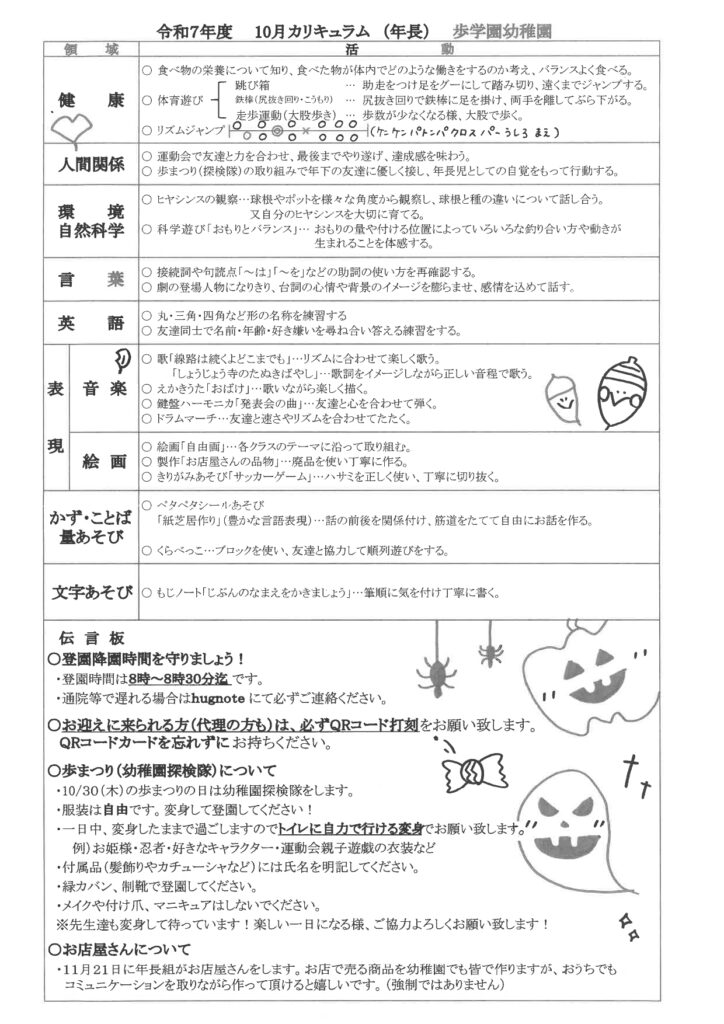 令和７年度　10月カリキュラム　（年長）　歩学園幼稚園
領　域　活　動
健　康
○ 食べ物の栄養について知り、食べた物が体内でどのような働きをするのか考え、バランスよく食べる。
○ 体育遊び
跳び箱　… 助走をつけ足をグーにして踏み切り、遠くまでジャンプする。
鉄棒（尻抜き回り・こうもり）… 尻抜き回りで鉄棒に足を掛け、両手を離してぶら下がる。
走歩運動（大股歩き）… 歩数が少なくなる様、大股で歩く。
○ リズムジャンプ　（ケンケンパトンパクロスパーうしろまえ）
人間関係
○ 運動会で友達と力を合わせ、最後までやり遂げ、達成感を味わう。
○ 歩まつり（探検隊）の取り組みで年下の友達に優しく接し、年長児としての自覚をもって行動する。
環　境
自然科学
○ ヒヤシンスの観察…球根やポットを様々な角度から観察し、球根と種の違いについて話し合う。
又自分のヒヤシンスを大切に育てる。
○ 科学遊び「おもりとバランス」… おもりの量や付ける位置によっていろいろな釣り合い方や動きが
生まれることを体感する。
言　葉
○ 接続詞や句読点「～は」「～を」などの助詞の使い方を再確認する。
○ 劇の登場人物になりきり、台詞の心情や背景のイメージを膨らませ、感情を込めて話す。
英　語
○ 丸・三角・四角など形の名称を練習する
○ 友達同士で名前・年齢・好き嫌いを尋ね合い答える練習をする。
表現
音　楽
○ 歌「線路は続くよどこまでも」…リズムに合わせて楽しく歌う。
「しょうじょう寺のたぬきばやし」…歌詞をイメージしながら正しい音程で歌う。
○ えかきうた「おばけ」…歌いながら楽しく描く。
○ 鍵盤ハーモニカ「発表会の曲」…友達と心を合わせて弾く。
○ ドラムマーチ…友達と速さやリズムを合わせてたたく。
絵　画
○ 絵画「自由画」…各クラスのテーマに沿って取り組む。
○ 製作「お店屋さんの品物」…廃品を使い丁寧に作る。
○ きりがみあそび「サッカーゲーム」…ハサミを正しく使い、丁寧に切り抜く。
かず・ことば
量あそび
○ ペタペタシールあそび
「紙芝居作り」（豊かな言語表現）…話の前後を関係付け、筋道をたてて自由にお話を作る。
○ くらべっこ…ブロックを使い、友達と協力して順列遊びをする。
文字あそび
○ もじノート「じぶんのなまえをかきましょう」…筆順に気を付け丁寧に書く。
伝 言 板
○登園降園時間を守りましょう！
・登園時間は8時～8時30分迄 です。
・通院等で遅れる場合はhugnote にて必ずご連絡ください。
○お迎えに来られる方（代理の方も）は、必ずQRコード打刻をお願い致します。
QRコードカードを忘れずに お持ちください。
○歩まつり（幼稚園探検隊）について
・10/30（木）の歩まつりの日は幼稚園探検隊をします。
・服装は自由です。変身して登園してください！
・一日中、変身したままで過ごしますのでトイレに自力で行ける変身でお願い致します。
例）お姫様・忍者・好きなキャラクター・運動会親子遊戯の衣装など
・付属品（髪飾りやカチューシャなど）には氏名を明記してください。
・緑カバン、制靴で登園してください。
・メイクや付け爪、マニキュアはしないでください。
※先生達も変身して待っています！楽しい一日になる様、ご協力よろしくお願い致します！
○お店屋さんについて
・11月21日に年長組がお店屋さんをします。お店で売る商品を幼稚園でも皆で作りますが、おうちでも
コミュニケーションを取りながら作って頂けると嬉しいです。（強制ではありません）